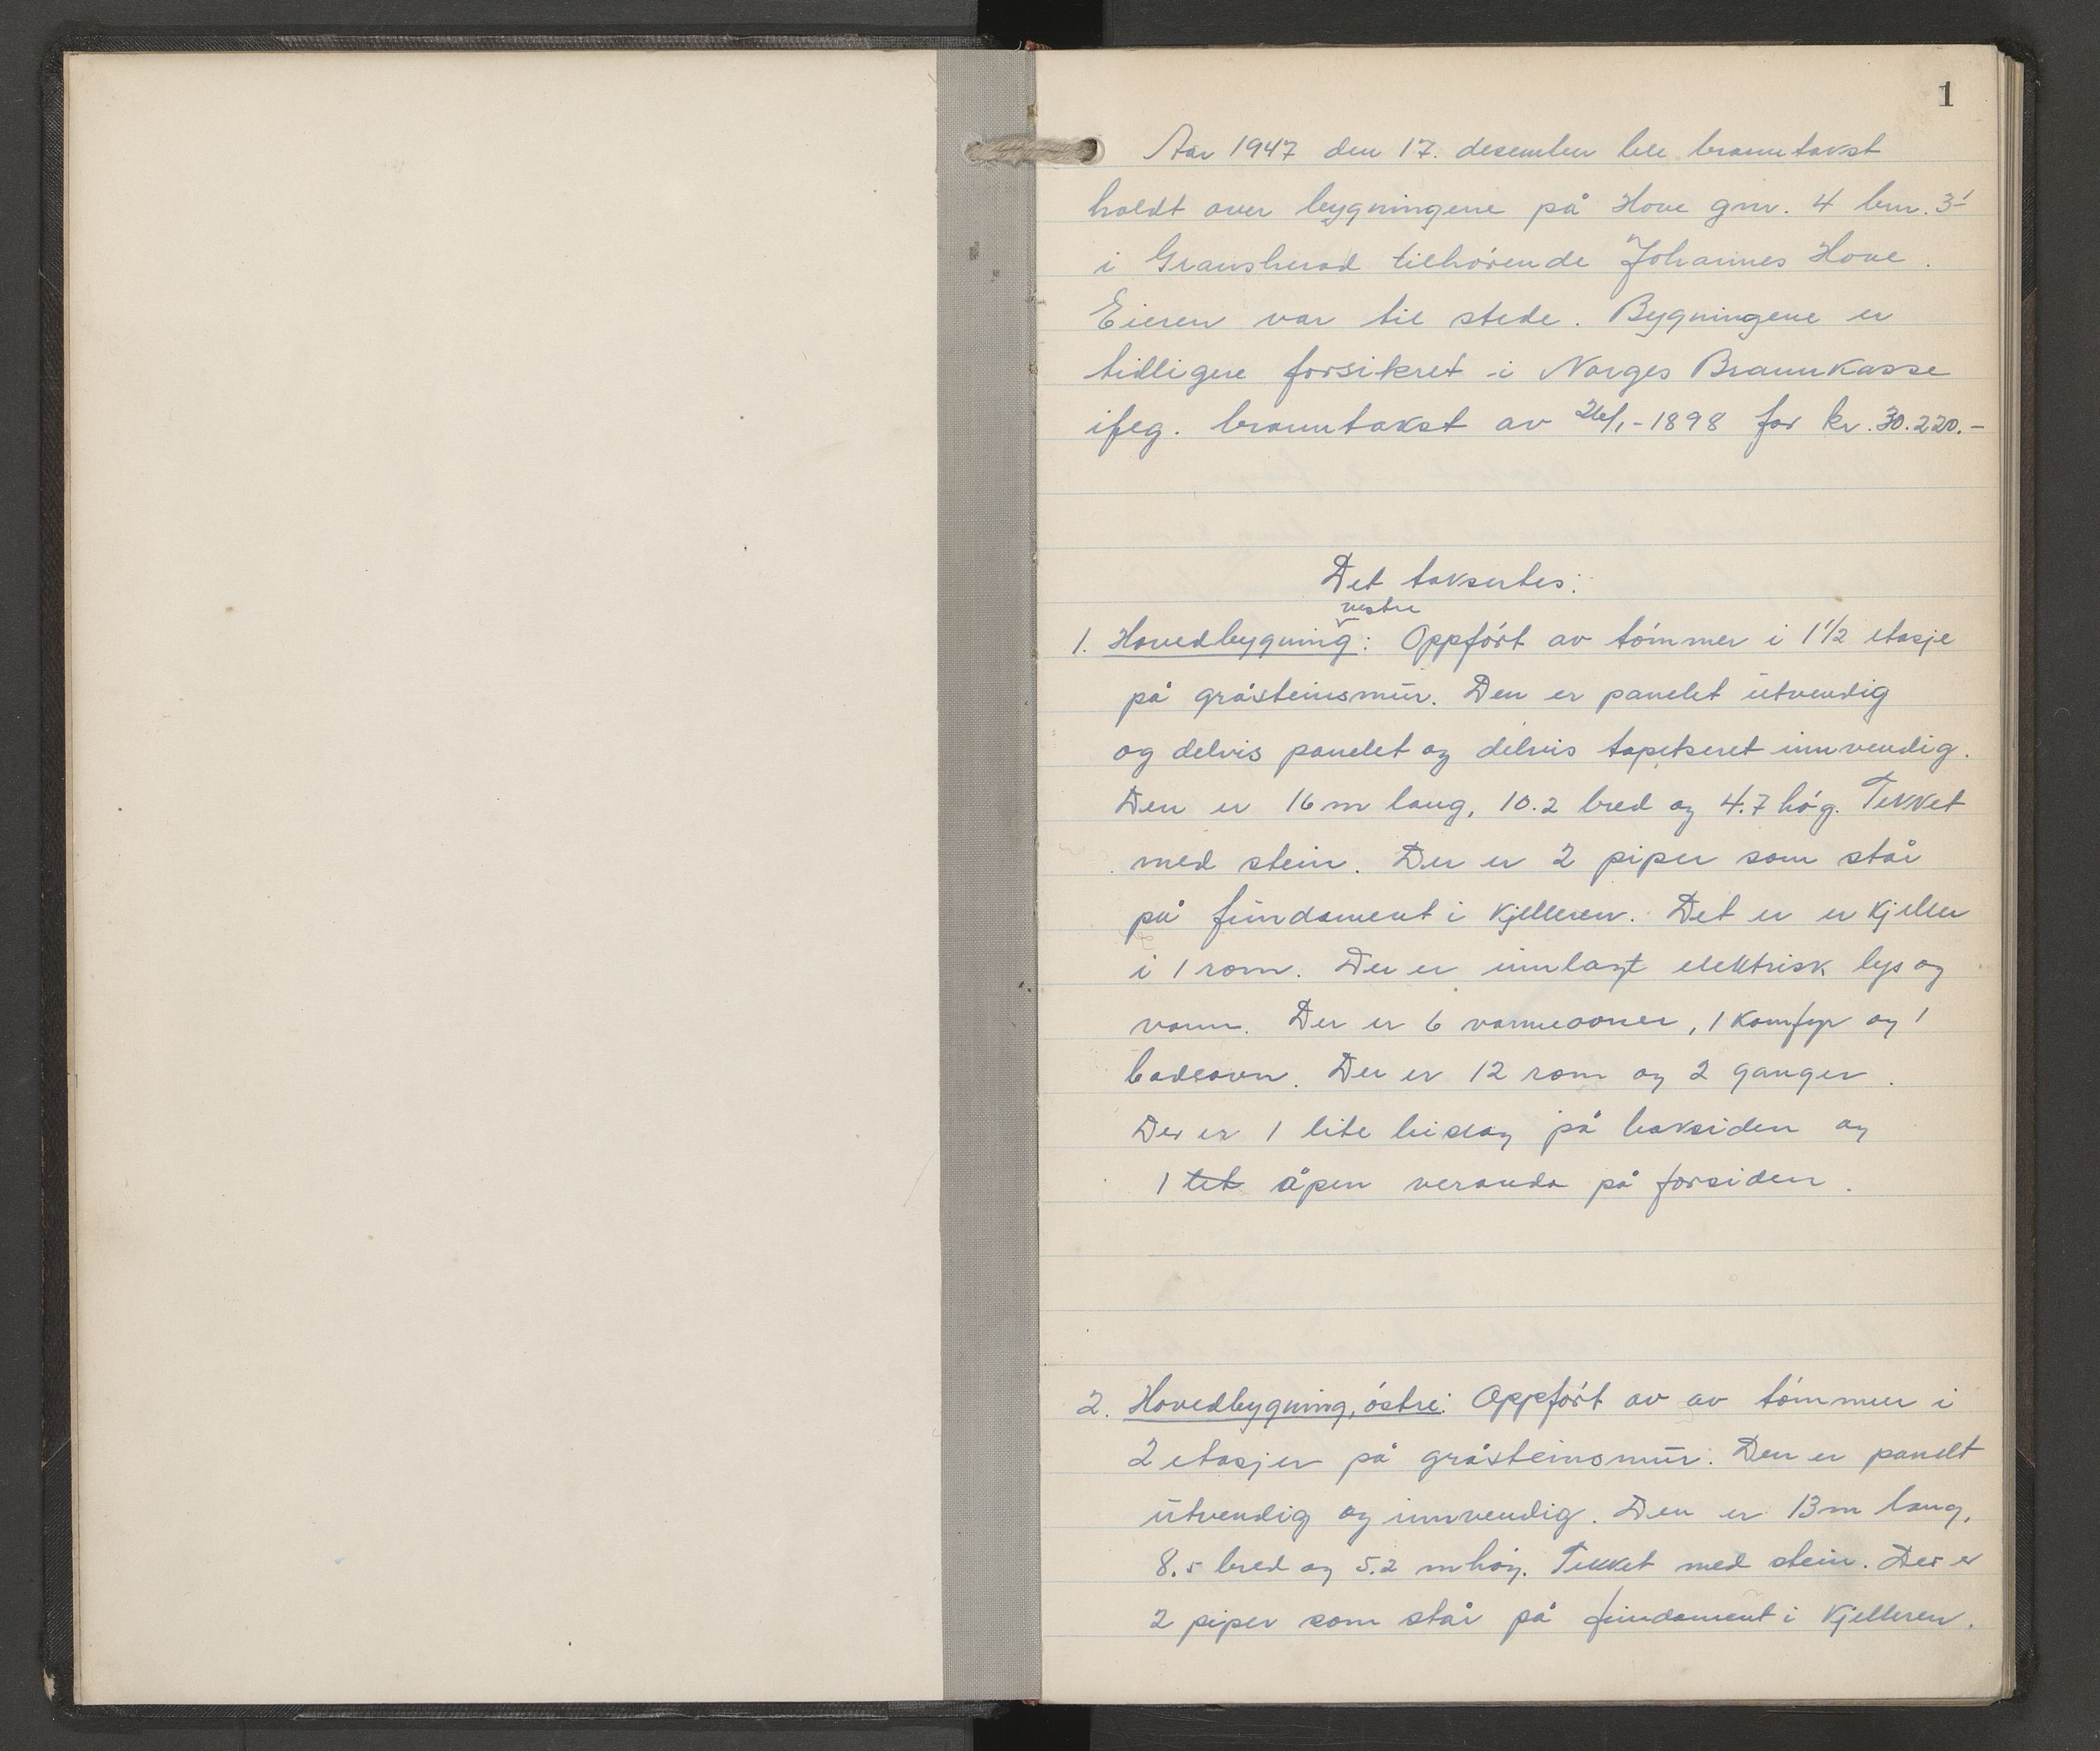 1
Aar 1947 den 17. desember ble branntakst
holdt over bygningene på Hove gnr. 4 bnr. 3
i Gransherad tilhørende Johannes Hove.
Eieren var til stede. Bygningene er
tidligere forsikret i Norges Brannkasse
iflg. branntakst av 26/1-1898 for kr. 30.220.-
Det taksertes:
vestre
1. Hovedbygning: Oppført av tømmer i 1 1/2 etasje
på gråsteinsmur. Den er panelet utvendig
og delvis panelet og delvis tapetseret innvendig.
Den er 16 m lang, 10.2 bred og 4.7 høg. Tekket
med stein. Der er 2 piper som står
på fundament i kjelleren. Det er er kjeller
i 1 rom. Der er innlagt elektrisk lys og
vann. Der er 6 varmeovner, 1 komfyr og 1
badeovn. Der er 12 rom og 2 ganger.
Der er 1 lite bislag på baksiden og
1 tet åpen veranda på forsiden.
2. Hovedbygning, østre: Oppført av av tømmer i
2 etasjer på gråsteinsmur. Den er panelt
utvendig og innvendig. Den er 13 m lang,
8.5 bred og 5.2 m høg. Tekket med stein. Der er
2 piper som står på fundament i kjelleren.